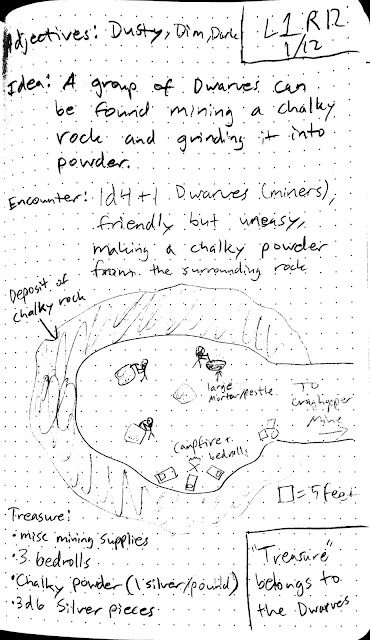 Adjectives: Dusty, Dim, Dark
L1 R12
1/12
Idea: A group of Dwarves can
be found mining a chalky
rock and grinding it into
powder.
Encounter: 1d4+1 Dwarves (miners),
friendly but uneasy,
making a chalky powder
from the surrounding rock
Deposit of
chalky rock
large
mortar/pestle
To
Mine
campfire +
bedrolls
□ = 5 feet
Treasure:
• misc mining supplies
• 3 bedrolls
• Chalky powder (1 silver/pound)
• 3d6 Silver pieces
"Treasure"
belongs to
the Dwarves